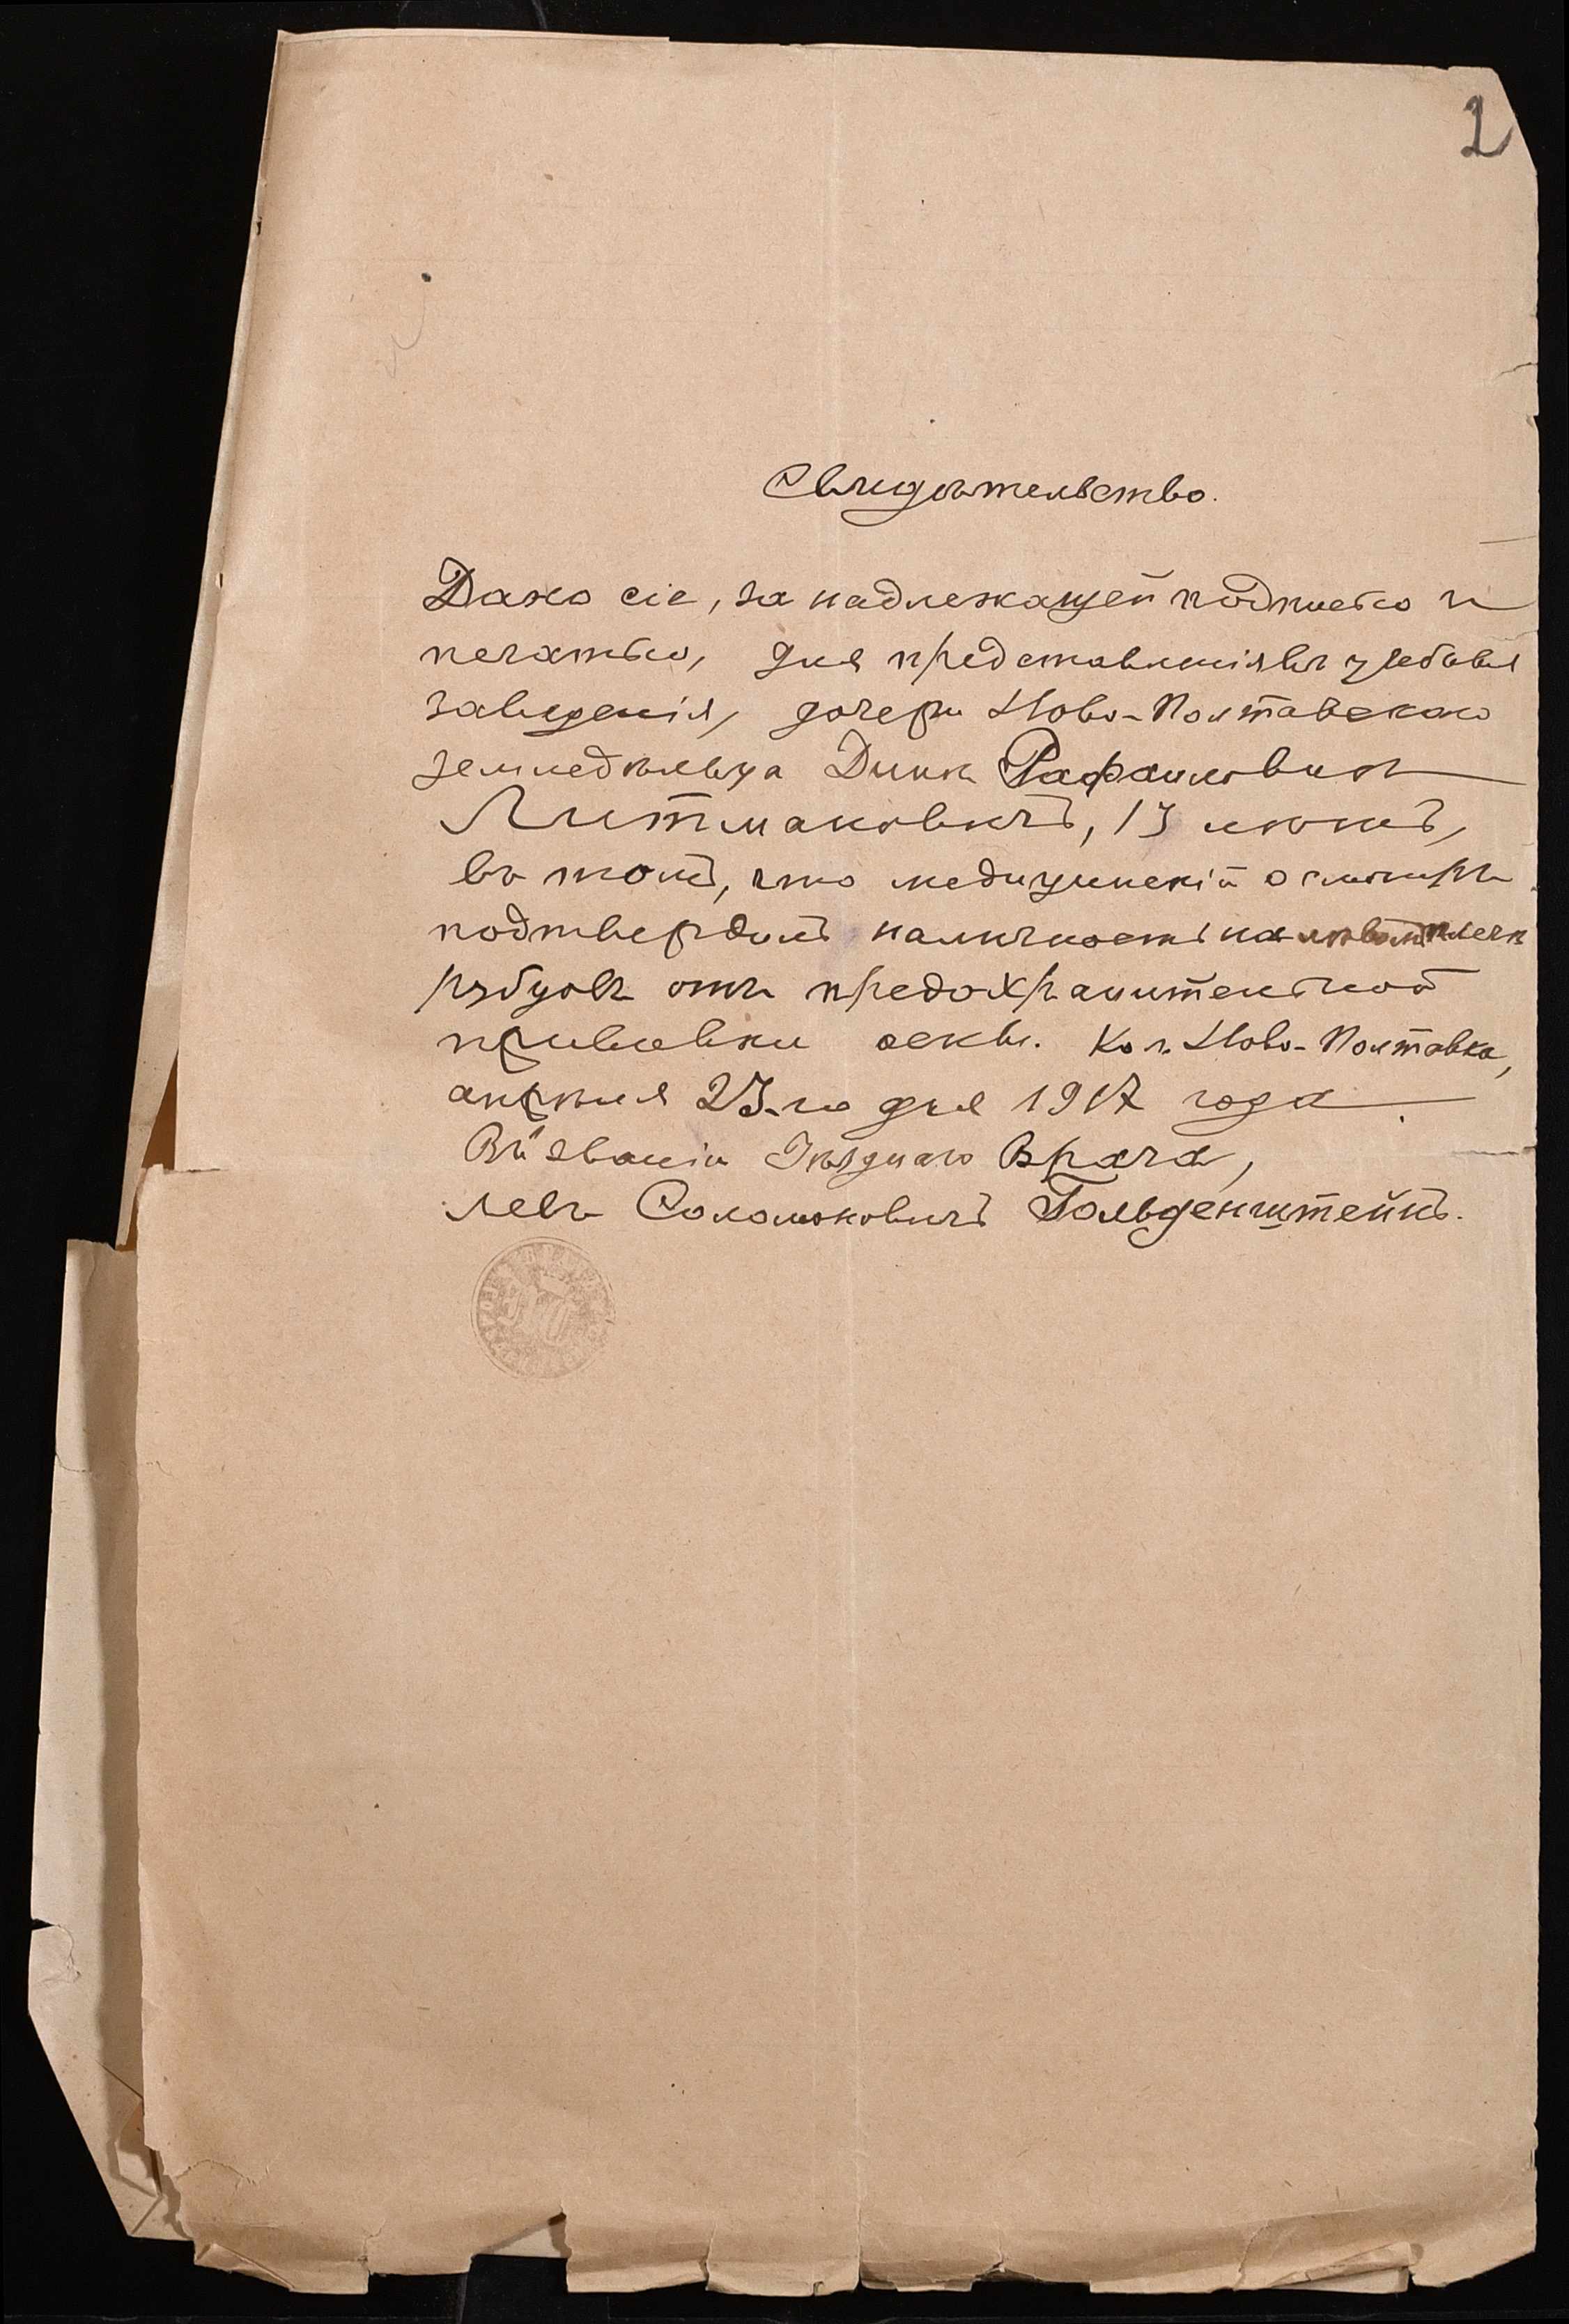 2
Свидѣтельство.
Дано сіе, за надлежащей подписью и
печатью, для представленія въ учебныя
заведенія, дочери Ново-Полтавскаго
земледѣльца Динѣ Рафаиловнѣ
Литмановичъ, 13 лѣтъ,
въ томъ, что медицинскій осмотръ
подтвердилъ наличность на лѣвомъ плечѣ
рубцовъ отъ предохранительной
прививки оспы. Кол. Ново-Полтавка,
апрѣля 23-го дня 1917 года.
Въ званіи Уѣзднаго Врача,
Левъ Соломоновичъ Гольденштейнъ.